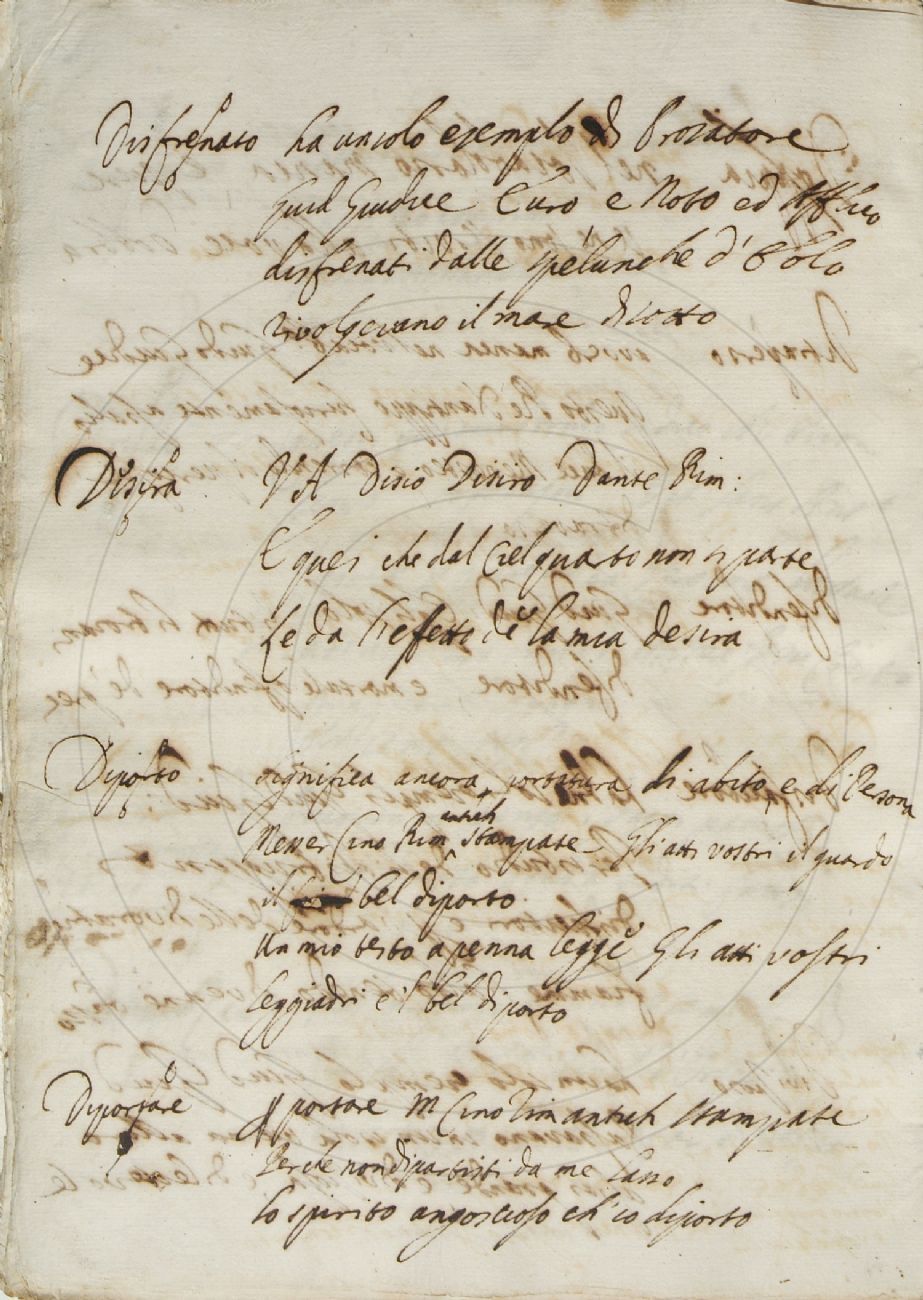 Disfrenato ha un solo esemplo di Prosatore
Guid Giudice Euro e Noto ed Affrico
disfrenati dalle spelunche d'Eolo
rivolgevano il mare di sotto
Desira VA Disio Disiro Dante Rim:
E quei che dal Ciel quarto non si parte
Le da l'effetto de la mia desira
Diporto significa ancora portatura di abito, e di Persona
Messer Cino Rim antich stampate Gli atti vostri il guardo
il bel diporto
Un mio testo a penna legge Gli atti vostri
leggiadri e'l bel diporto
Diportare p portare M Cino Rim antich stampate
Perche non dipartisti da me lasso
Lo spirito angoscioso ch'io diporto